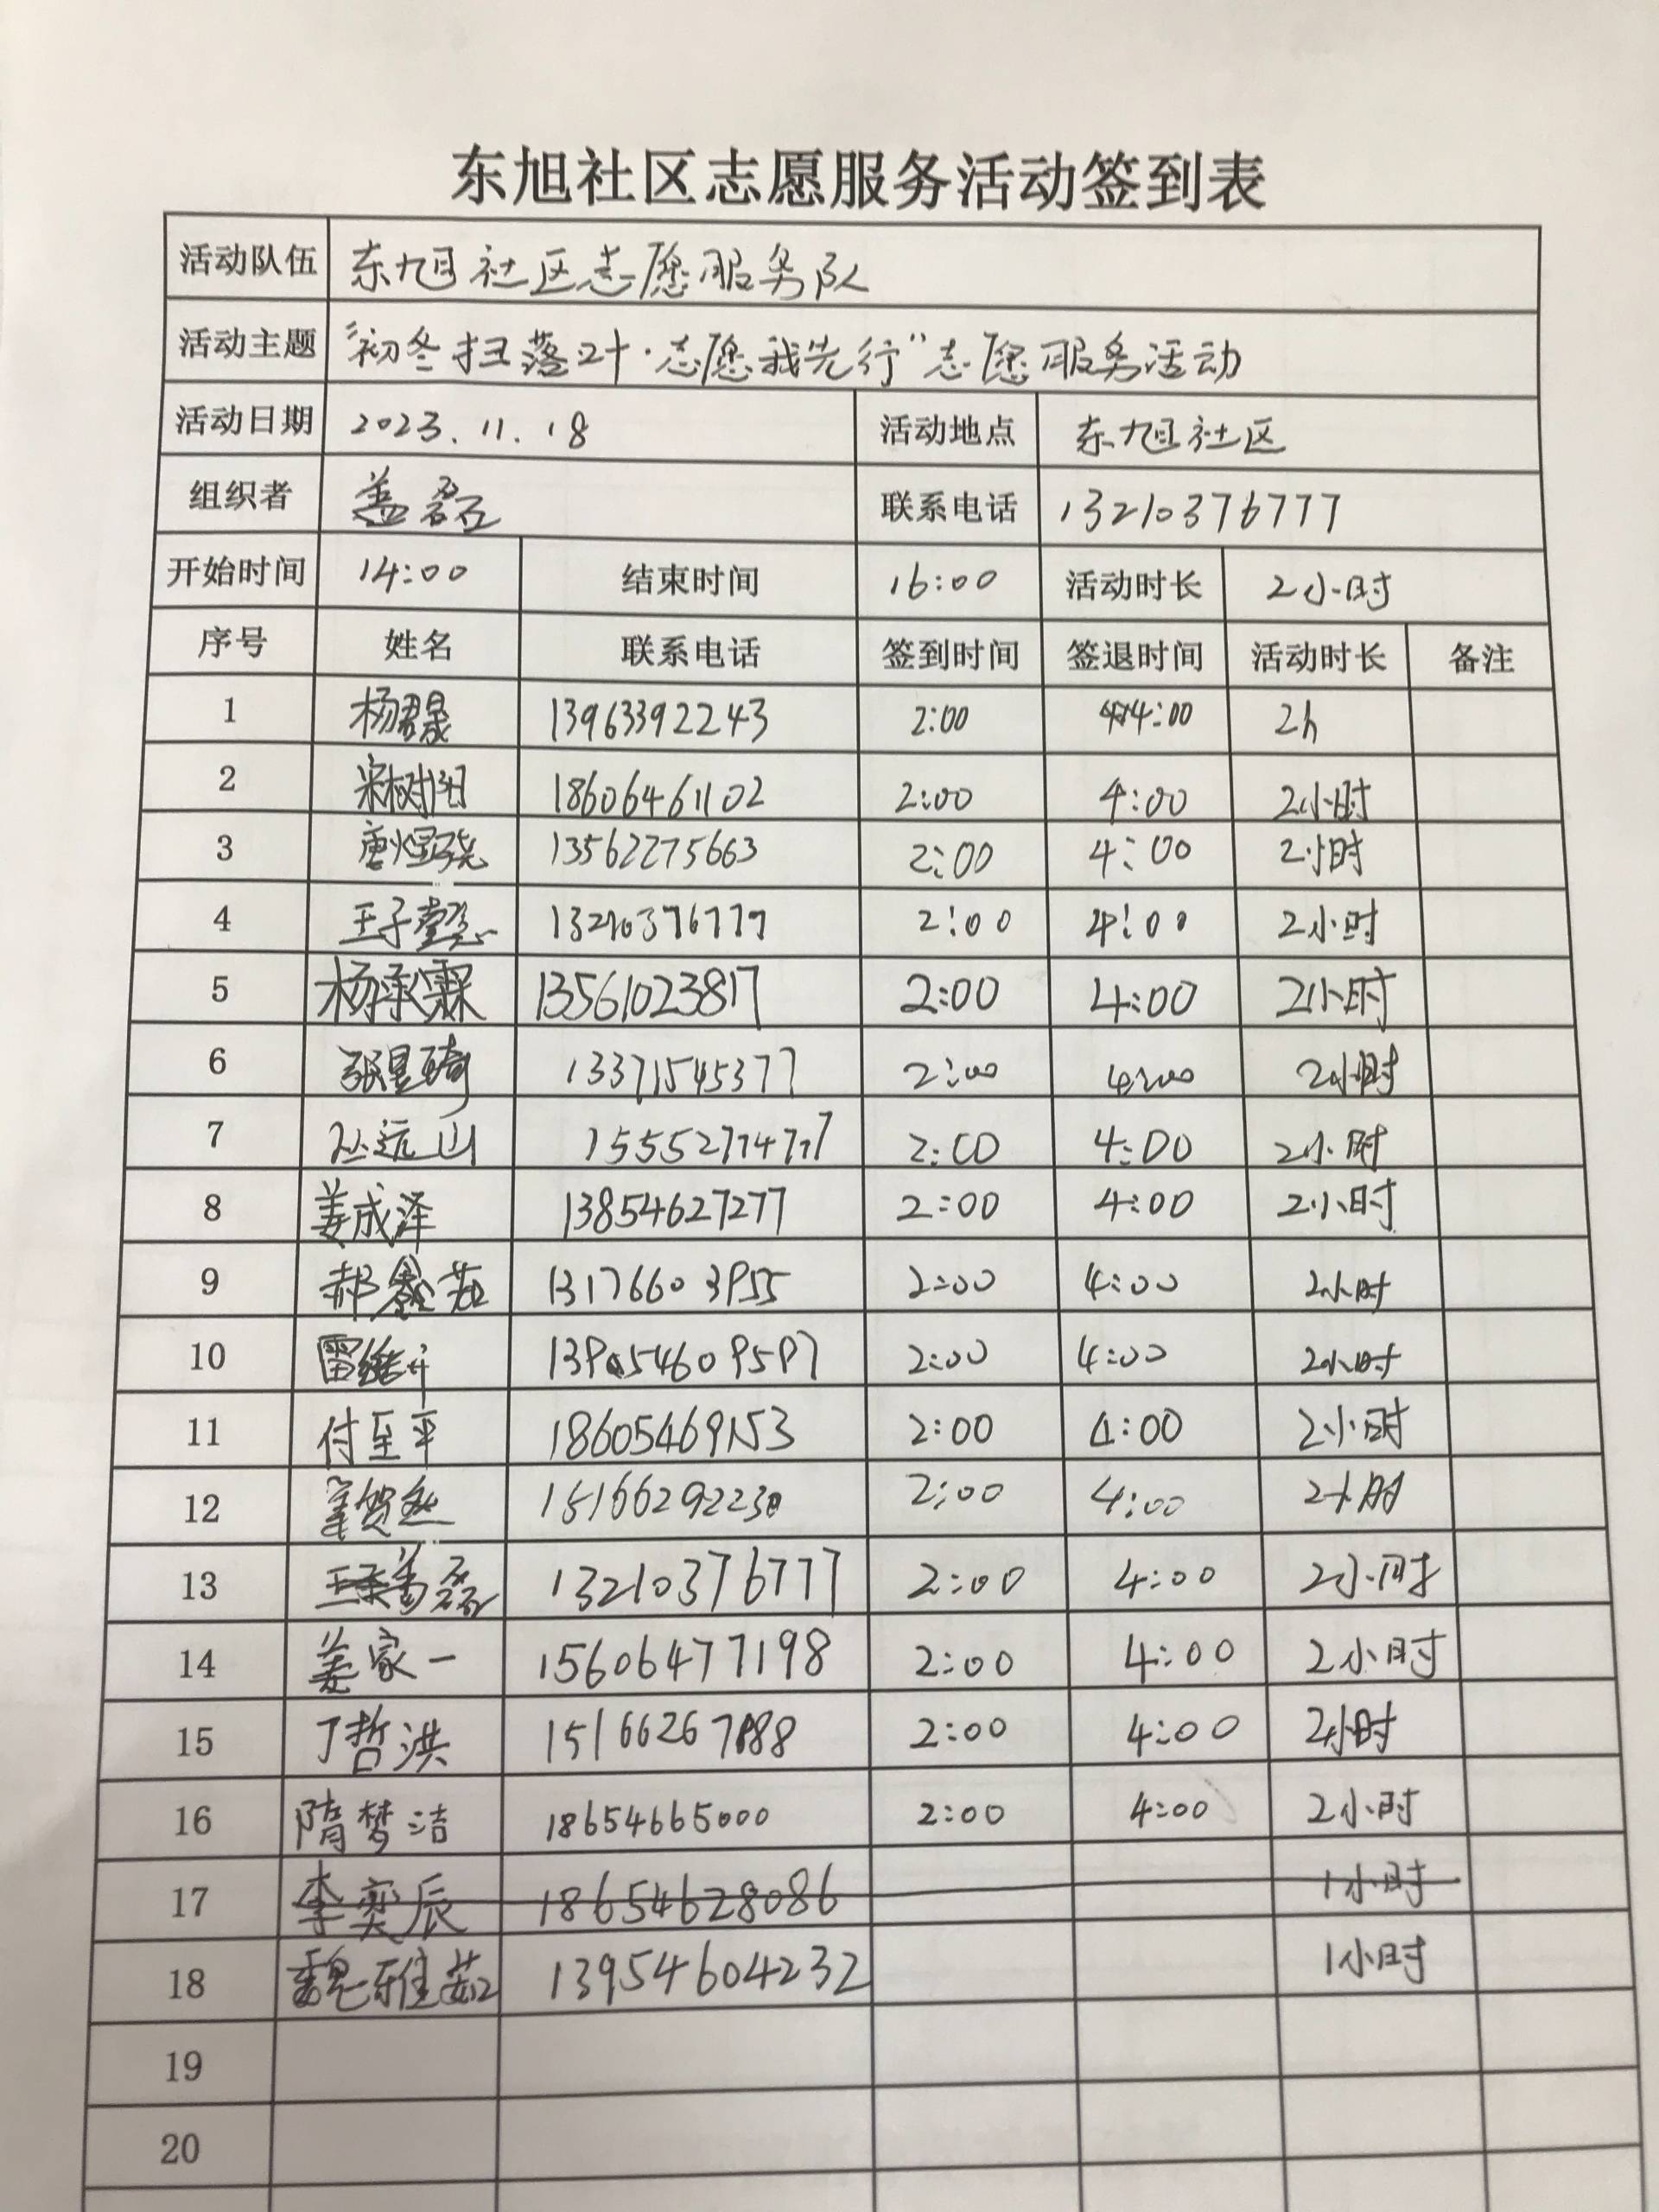 东旭社区志愿服务活动签到表
活动队伍 东旭社区志愿服务队
活动主题 “初冬扫落叶·志愿我先行”志愿服务活动
活动日期 2023.11.18 活动地点 东旭社区
组织者 盖磊 联系电话 13210376777
开始时间 14:00 结束时间 16:00 活动时长 2小时
序号 姓名 联系电话 签到时间 签退时间 活动时长 备注
1 杨君晟 13963392243 2:00 4:00 2h
2 宋树阳 18606461102 2:00 4:00 2小时
3 唐煜尧 13562275663 2:00 4:00 2小时
4 王子懿 13210376777 2:00 4:00 2小时
5 杨承霖 13561023817 2:00 4:00 2小时
6 张星琦 13371545377 2:00 4:00 2小时
7 孙远山 15552774777 2:00 4:00 2小时
8 姜成泽 13854627277 2:00 4:00 2小时
9 郝鑫茹 13176603955 2:00 4:00 2小时
10 2:00 4:00 2小时
11 付至平 18605469153 2:00 4:00 2小时
12 15166292230 2:00 4:00 2小时
13 盖磊 13210376777 2:00 4:00 2小时
14 姜家一 15606477198 2:00 4:00 2小时
15 丁哲洪 15166267888 2:00 4:00 2小时
16 隋梦洁 18654665000 2:00 4:00 2小时
17 李奕辰 18654628086 1小时
18 魏雅茹 13954604232 1小时
19
20